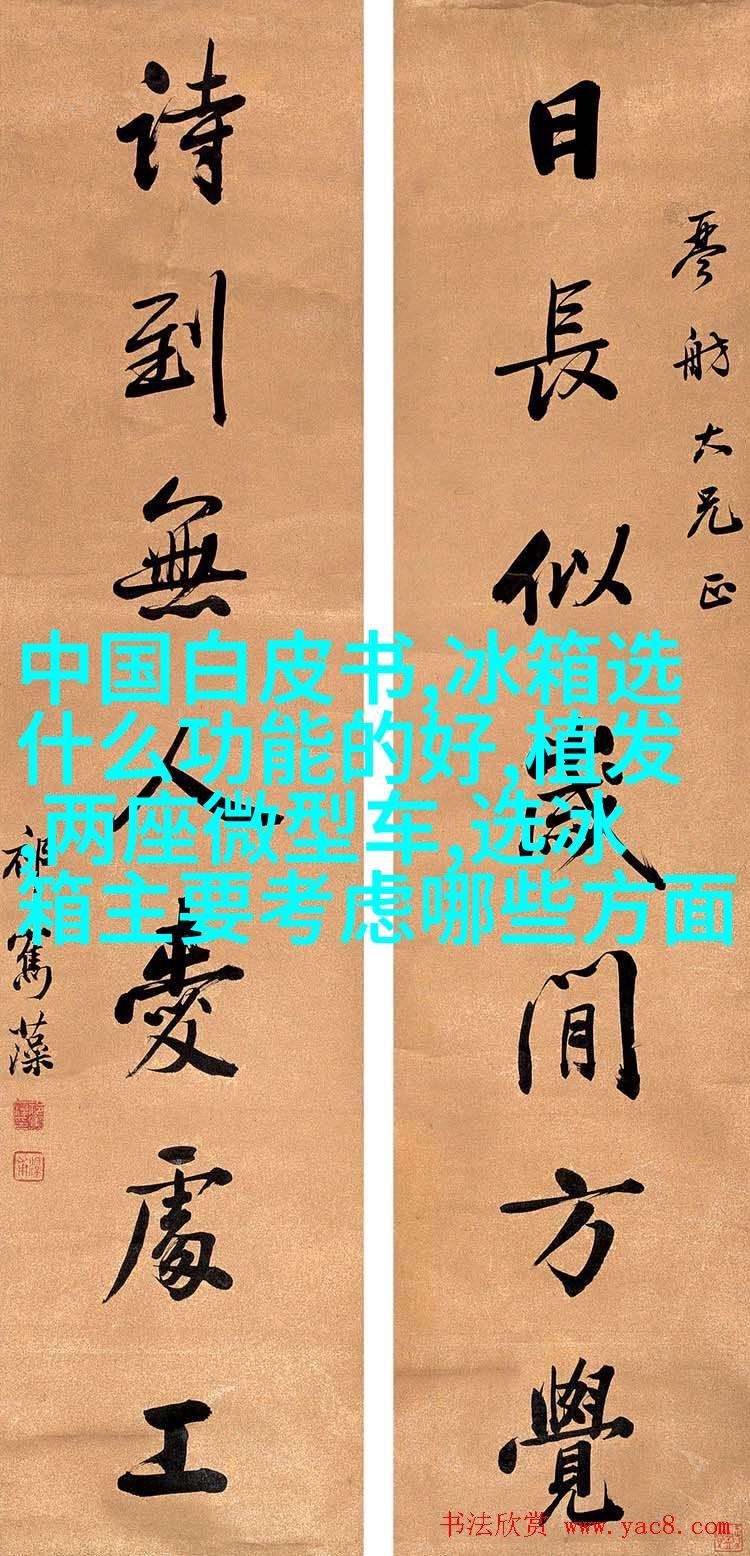 琴舫大兄正
日長似歲閒方覺
詩到無人愛處工
祁寯藻
中国白皮书,冰箱选
什么功能的好,植发
,两座微型车,选冰
箱主要考虑哪些方面
书法欣赏 www.yac8.com